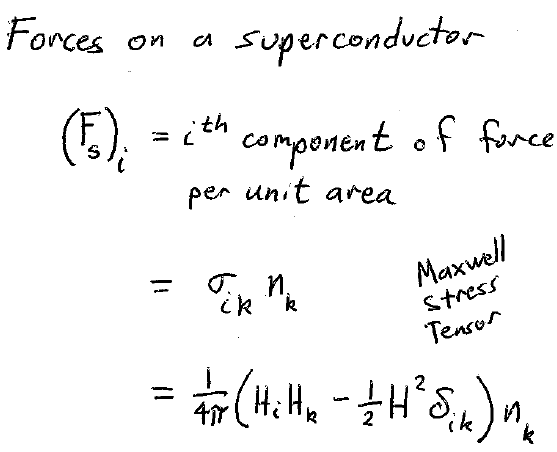 Forces on a superconductor
(F_s)_i = i^th component of force
per unit area
= σ_ik n_k Maxwell
Stress
Tensor
= 1/4π (H_i H_k - 1/2 H² δ_ik) n_k